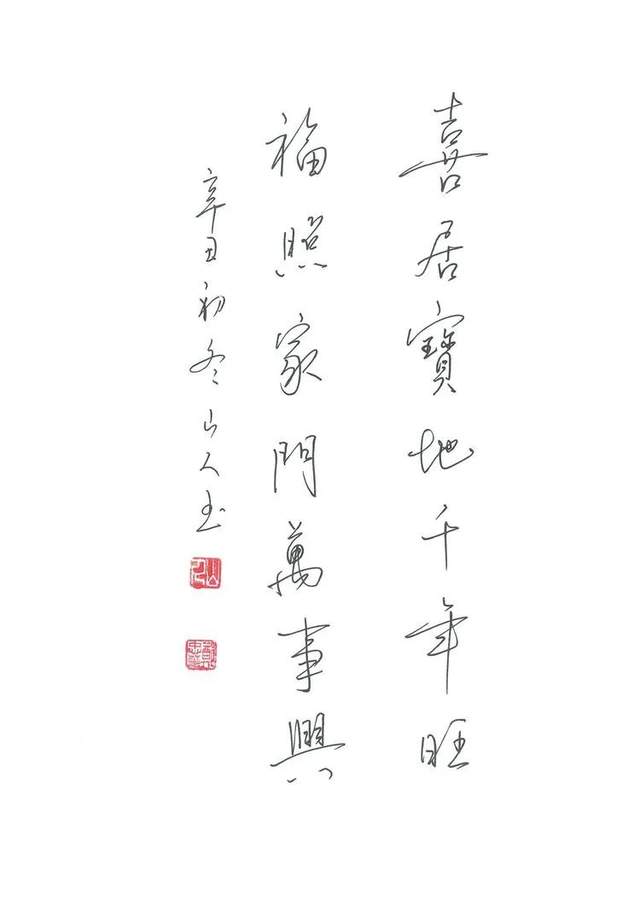 喜居寶地千年旺
福照家門萬事興
辛丑初冬山人玉
山人